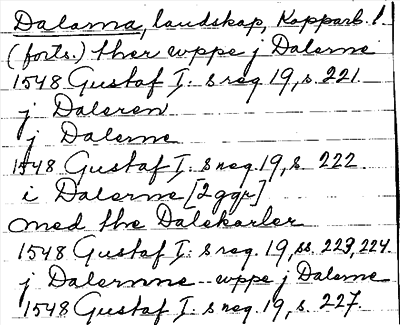 Dalarna, landskap, Kopparb. l.
(forts.) ther wppe j Dalerne
1548 Gustaf I: s reg. 19, s. 221.
j Daleren
j Dalerne
1548 Gustaf I: s reg. 19, s. 222
i Dalerne [2 ggr]
med the Dalekarler
1548 Gustaf I: s reg. 19, ss. 223, 224
j Dalernne - wppe j Dalerne
1548 Gustaf I: s reg. 19, s. 227.